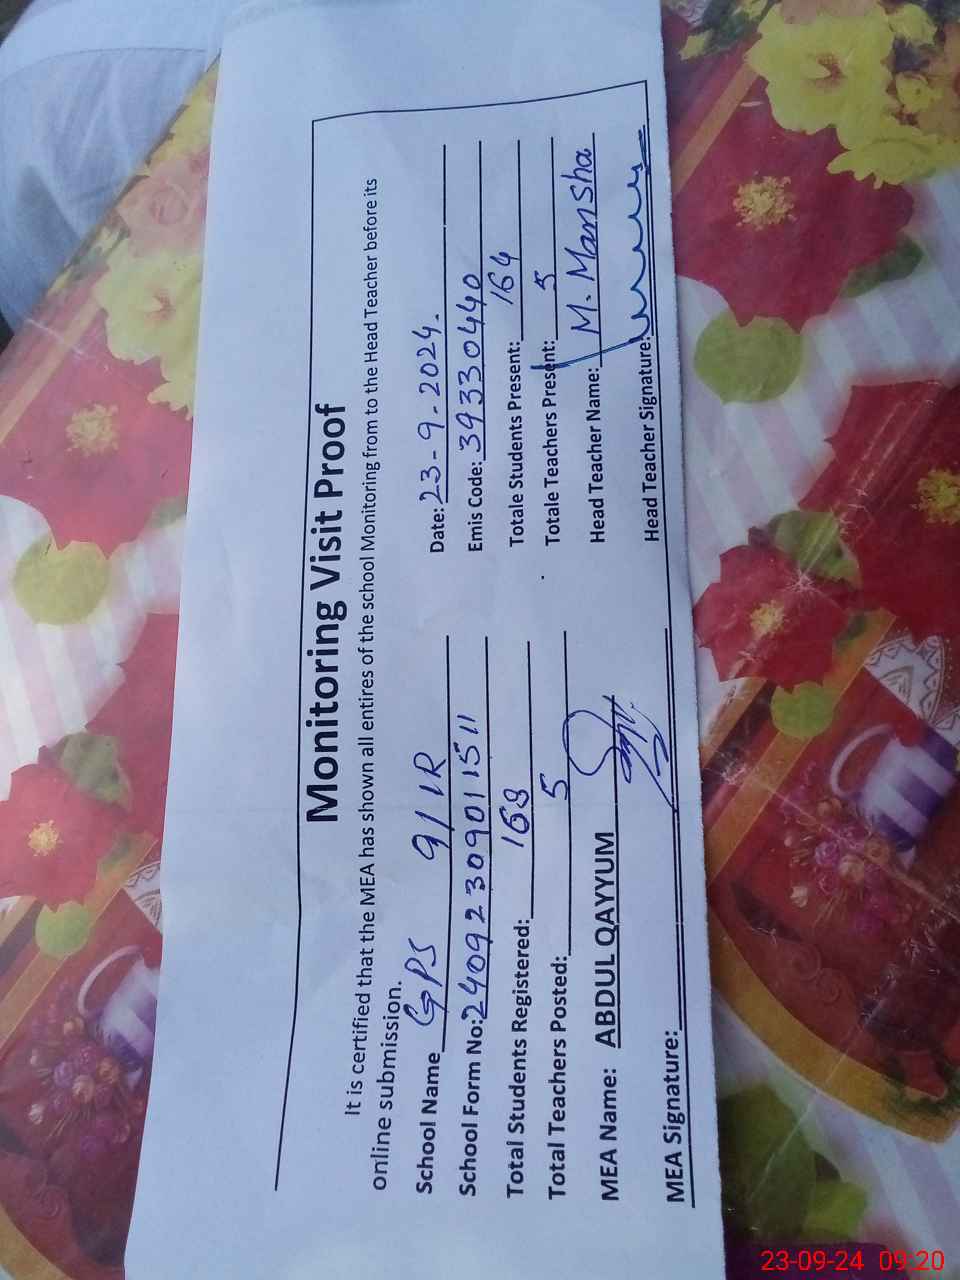 Monitoring Visit Proof
It is certified that the MEA has shown all entires of the school Monitoring from to the Head Teacher before its
online submission.
School Name GPS 9/1R Date: 23-9-2024.
School Form No: 2409230901 1511 Emis Code: 39330440
Total Students Registered: 168 Totale Students Present: 164
Total Teachers Posted: 5 Totale Teachers Present: 5
MEA Name: ABDUL QAYYUM Head Teacher Name: M. Mansha
MEA Signature: Head Teacher Signature:
23-09-24 09:20